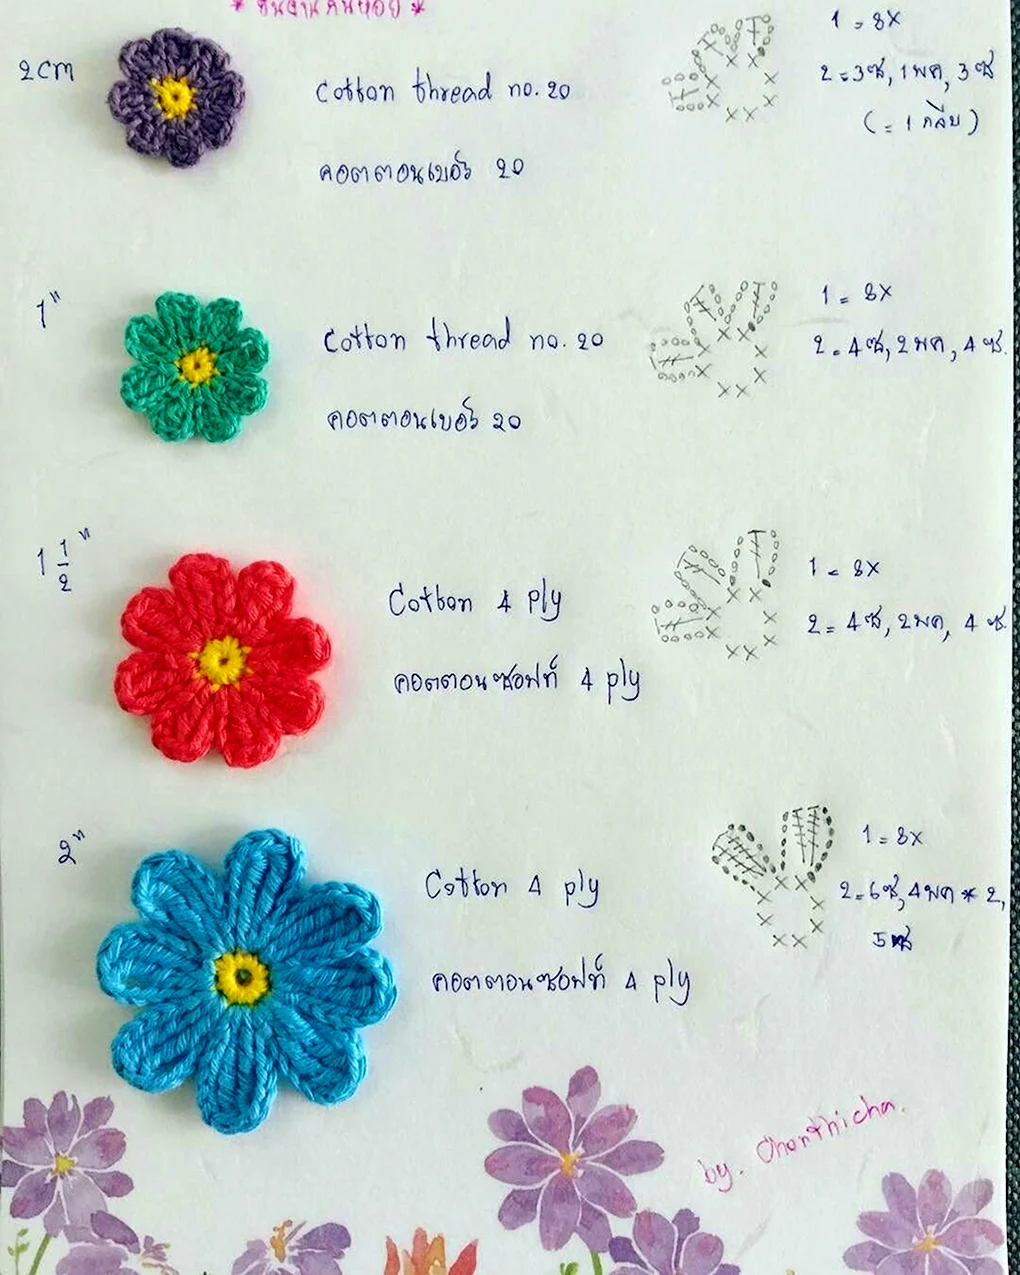 2cm
Cotton thread no. 20
คอตตอนเบอร์ 20
1 = 8X
2 = 3ซ, 1พค, 3ซ
(= 1 กลีบ)
1"
Cotton thread no. 20
คอตตอนเบอร์ 20
1 = 8X
2 = 4ซ, 2พค, 4ซ.
1 1/2"
Cotton 4 ply
คอตตอนซอฟท์ 4 ply
1 = 8X
2 = 4ซ, 2พค, 4ซ.
2"
Cotton 4 ply
คอตตอนซอฟท์ 4 ply
1 = 8X
2 = 6ซ, 4พค * 2,
5ซ
by. Chonthicha.